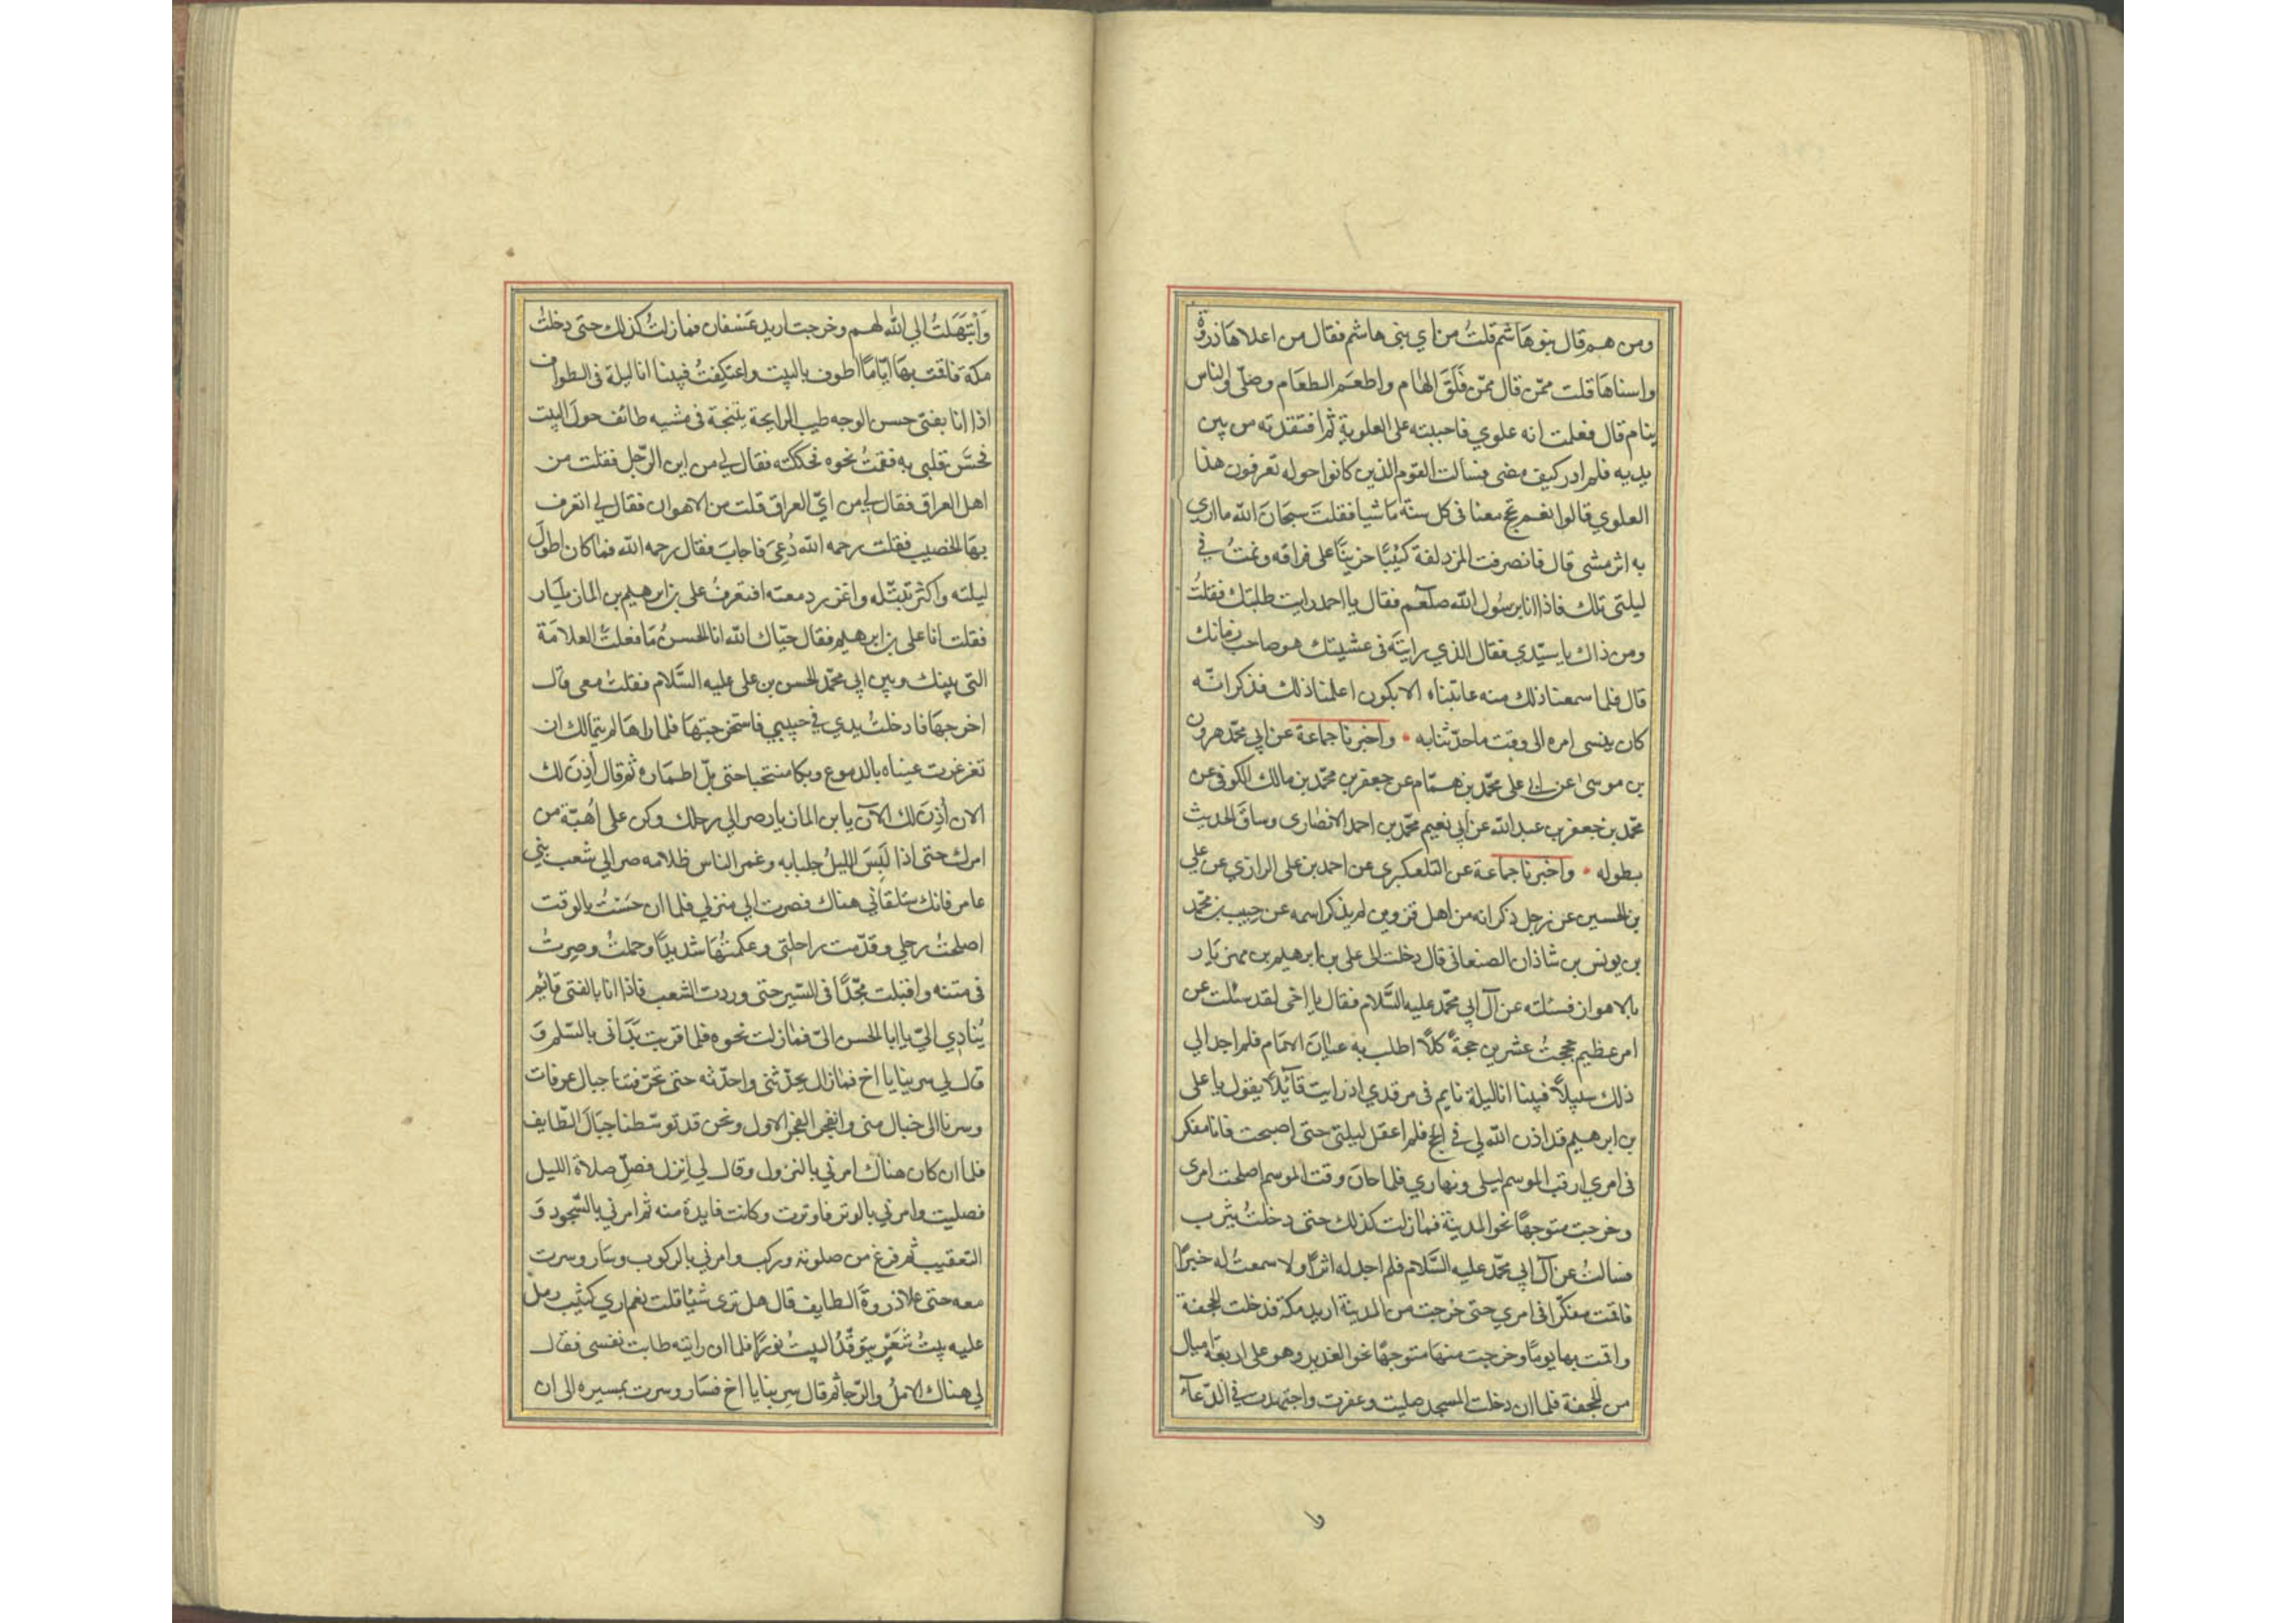 ومن هم قال بنو هاشم قلتُ من اي بني هاشم فقال من اعلاها ذروة
واسناها قلت ممّن قال ممّن فَلَقَ الهام واطعَم الطعَام وصَلّى والناس
ينام قال فعلمت انه علوي فاحببته على العلوية ثم افتقدته من بين
يديه فلم ادر كيف مضى فسالت القوم الذين كانوا حوله تعرفون هذا
العلوي قالوا نعم يحج معنا في كل سنة مَاشيا فقلت سبحَانَ الله ما ارى
به اثر مشي قال فانصرفت المزدلفة كئيبًا حزينًا على فراقه ونمتُ في
ليلتي تلك فاذا انا برسُول الله صلعم فقال يا احمد رايت طلبتك فقلتُ
ومن ذاك يا سيّدي فقال الذي رايتَه في عشيتك هو صاحب زمانك
قال فلما سمعنا ذلك منه عاتبناه الا يكون اعلمنا ذلك فذكر انّه
كان ينسى امره الى وقت ما حدّثنا به • واخبرنا جماعة عن ابي محمّد هرون
بن موسى عن ابي علي محمّد بن همّام عن جعفر بن محمّد بن مالك الكوفي عن
محمّد بن جعفر بن عبد الله عن ابي نعيم محمّد بن احمد الانصاري وساقَ الحديث
بطوله • واخبرنا جماعة عن التلعكبري عن احمد بن علي الرازي عن علي
بن الحسين عن رجل ذكر انه من اهل قزوين لم يذكر اسمه عن حبيب بن محمّد
بن يونس بن شاذان الصنعاني قال دخلت الى علي بن ابرهيم بن مهزيَار
بالاهواز فسئلته عن آل ابي محمّد عليه السَّلام فقال يا اخي لقد سئلت عن
امر عظيم حججتُ عشرين حجةً كلًا اطلب به عيانَ الامَام فلم اجد الى
ذلك سبيلًا فبينا انا ليلة نايم في مرقدي اذ رايت قآئلًا يقول يا علي
بن ابرهيم قد اذن الله لي في الحج فلم اعقل ليلتي حتى اصبحت فانا مفكر
في امري ارقب الموسم ليلي ونهاري فلما حانَ وقت الموسم اصلحت امري
وخرجت متوجهًا نحو المدينة فمازلت كذلك حتى دخلتُ يثرب
فسالتُ عن آل ابي محمّد عليه السَّلام فلم اجد له اثرًا ولا سمعتُ له خبرًا
فاقمت مفكّرا في امري حتى خرجت من المدينة اريد مكة فدخلت الجحفة
واقمت بها يومًا وخرجت منهَا متوجهًا نحو الغدير وهو على اربعَة اميال
من الجحفة فلما ان دخلت المسجد صليت وعفرت واجتهدت في الدّعآء
وا
وَابتَهَلتُ الى الله لهم وخرجت اريد عَسْفان فمازلتُ كذلك حتى دخلتُ
مكة فاقمت بهَا ايّامًا اطوف بالبيت واعتكفتُ فبينا انا ليلة في الطواف
اذا انا بفتى حسن الوجه طيب الرايحة يتبختر في مشيه طائف حولَ البيت
فحسَّ قلبي به فقمتُ نحوه فحككته فقال لي من اين الرّجل فقلت من
اهل العراق فقال لي من ايّ العراق قلت من الاهواز فقال لي اتعرف
بهَا الخصيب فقلت رحمه الله دُعيَ فاجابَ فقال رحمه الله فما كان اطولَ
ليلته واكثر تبتّله واغزر دمعته افتعرفُ علي بن ابرهيم بن المازيار
فقلت انا علي بن ابرهيم فقال حيّاك الله ابا الحسن مَا فعلتَ العلامَة
التي بينك وبين ابي محمّد الحسن بن علي عليه السَّلام فقلتُ معي قال
اخرجهَا فادخلتُ يدي في جيبي فاستخرجتهَا فلما راهَا لم يتمالك ان
تغرغرت عيناه بالدموع وبكا منتحبا حتى بلّ اطمَاره ثم قال أُذِنَ لك
الان أُذِنَ لك الآن يا بن المازيار صر الى رحلك وكن على اُهبّة من
امرك حتى اذا لَبِسَ الليلُ جلبابه وغمر الناس ظلامه صر الى شعب بني
عامر فانك ستلقاني هناك فصرت الى منزلي فلما ان حسَستُ بالوقت
اصلحتُ رحلي وقدّمت راحلتي وعكمتُهَا شديدًا وحملتُ وصِرتُ
في متنه واقبلت مجّدًا في السّير حتى وردت الشعب فاذا انا بالفتى قائم
يُنادي اليّ يا ابا الحسن اليّ فمازلت نحوه فلما قربت بَدَاني بالسّلم وَ
قال لي سر بنا يا اخ فمازال يحدّثني واحدّثه حتى تخرّقنا جبال عرفات
وسرنا الى جبال منى وانفجر الفجر الاول ونحن قد توسّطنا جبَالَ الطّايف
فلما ان كان هناك امرني بالنزول وقال لي اِنزل فصلِّ صلاة الليل
فصليت وامرني بالوتر فاوترت وكانت فايدة منه ثم امرني بالسّجود وَ
التعقيب ثم فرغ من صلوته وركب وامرني بالركوب وسَار وسرت
معه حتى علا ذروة الطايف قال هل ترى شيئا قلت نعم ارى كثيب رمل
عليه بيتُ شَعَرٍ يتوقّدُ البيتُ نورًا فلما ان رايته طابت نفسي فقال
لي هناك الاملُ والرّجا ثم قال سِر بنا يا اخ فسَار وسرت بمسيره الى ان